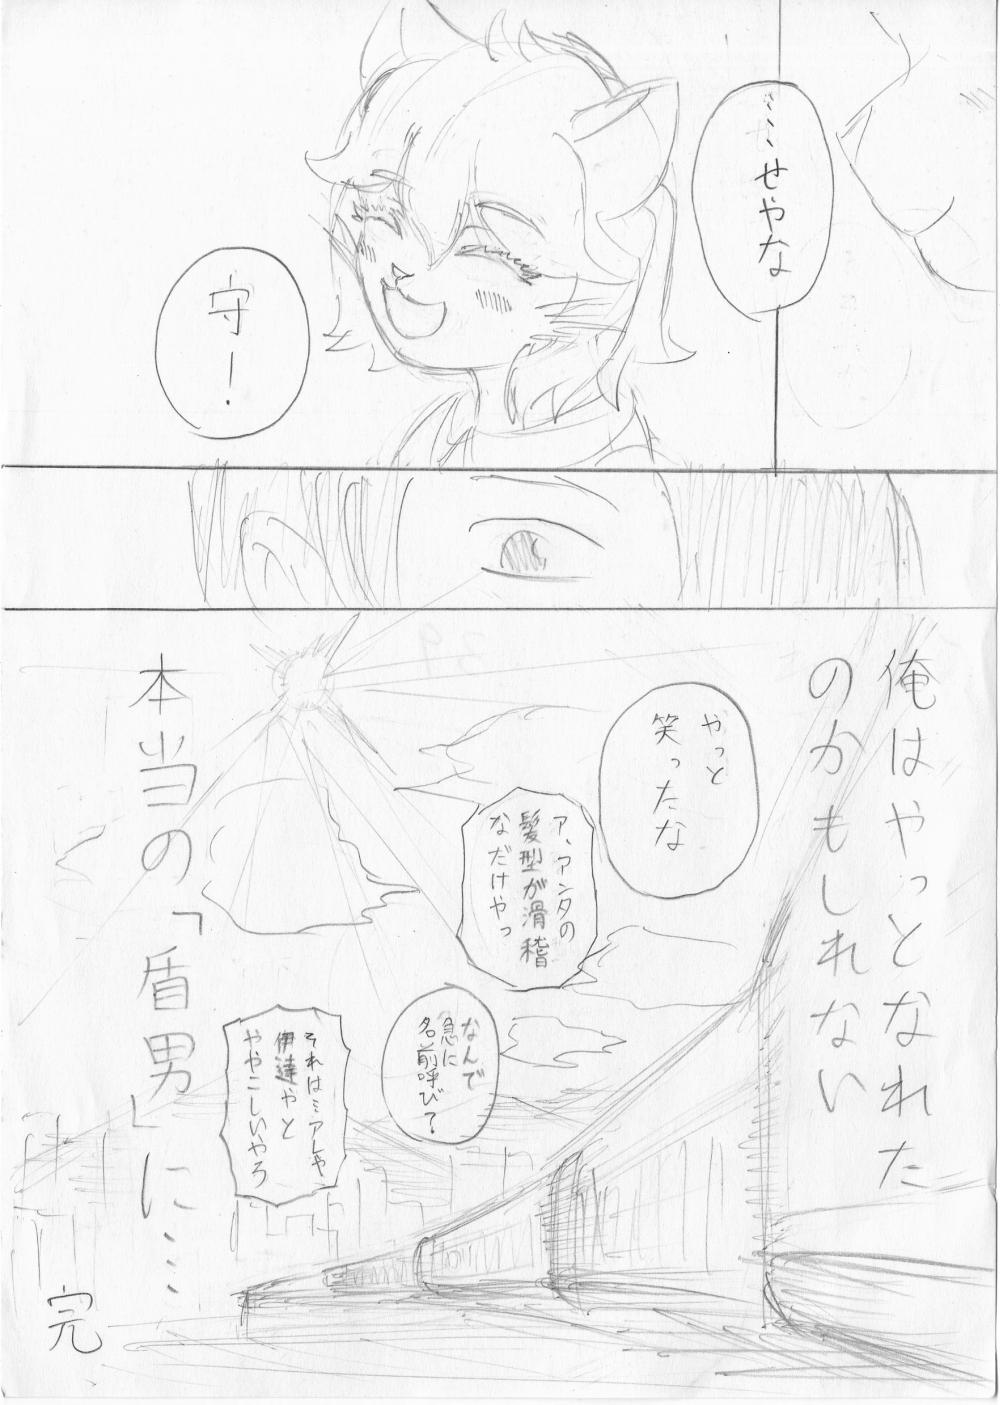 ……せやな
守ー！
俺はやっとなれた
のかもしれない
やっと
笑ったな
ア、アンタの
髪型が滑稽
なだけやっ
なんで
急に
名前呼び？
それは…アレや、
伊達やと
ややこしいやろ
本当の「盾男」に…
完